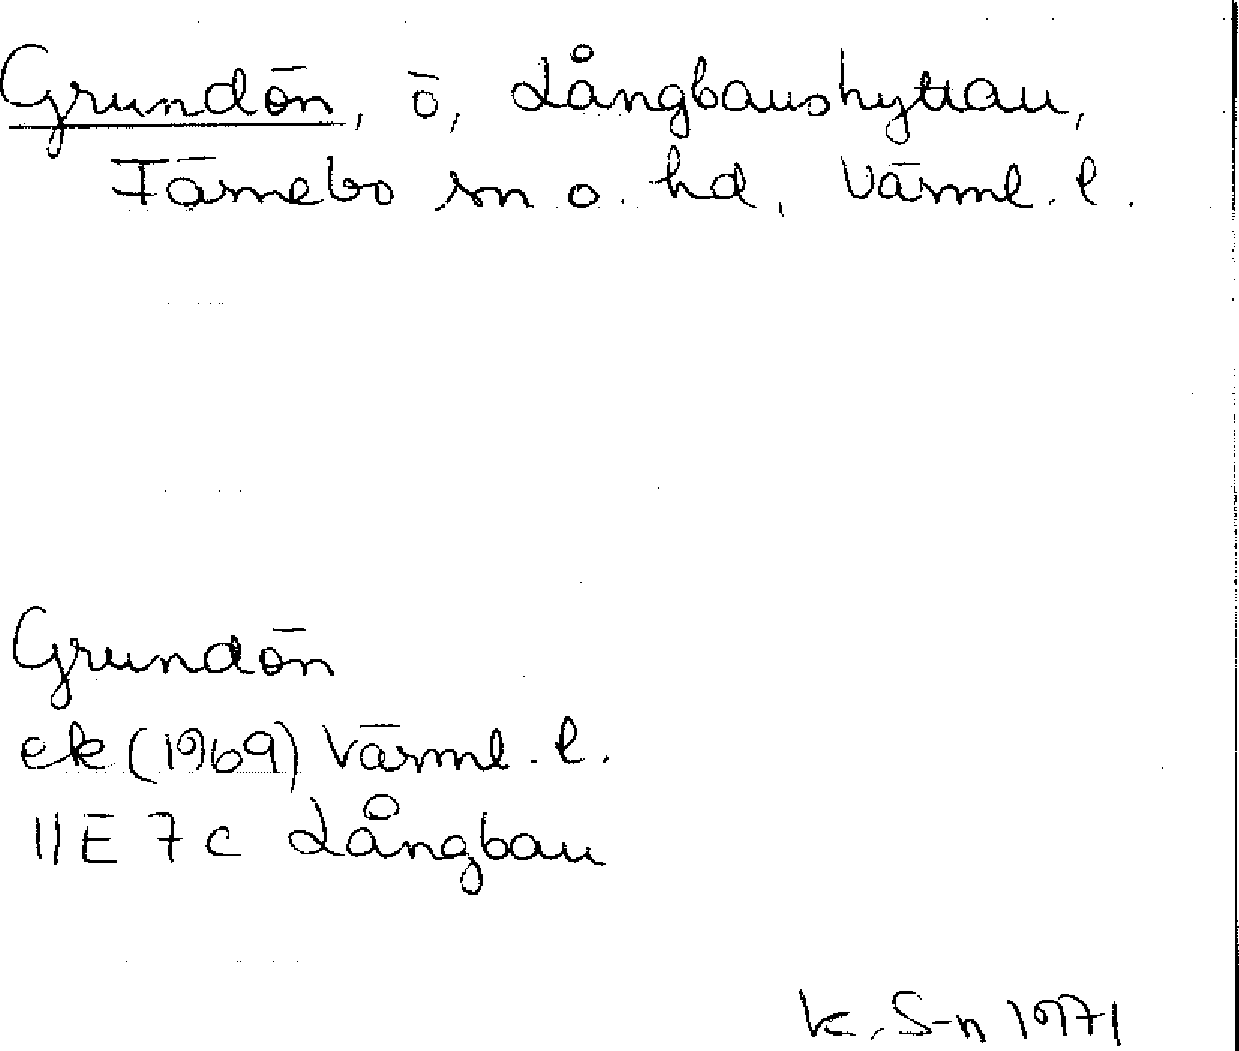 Grundön, ö, Långbanshyttan,
Färnebo sn o. hd, Värml. l.
Grundön
ek (1969) Värml. l.
11E 7c Långban
K. S-n 1971